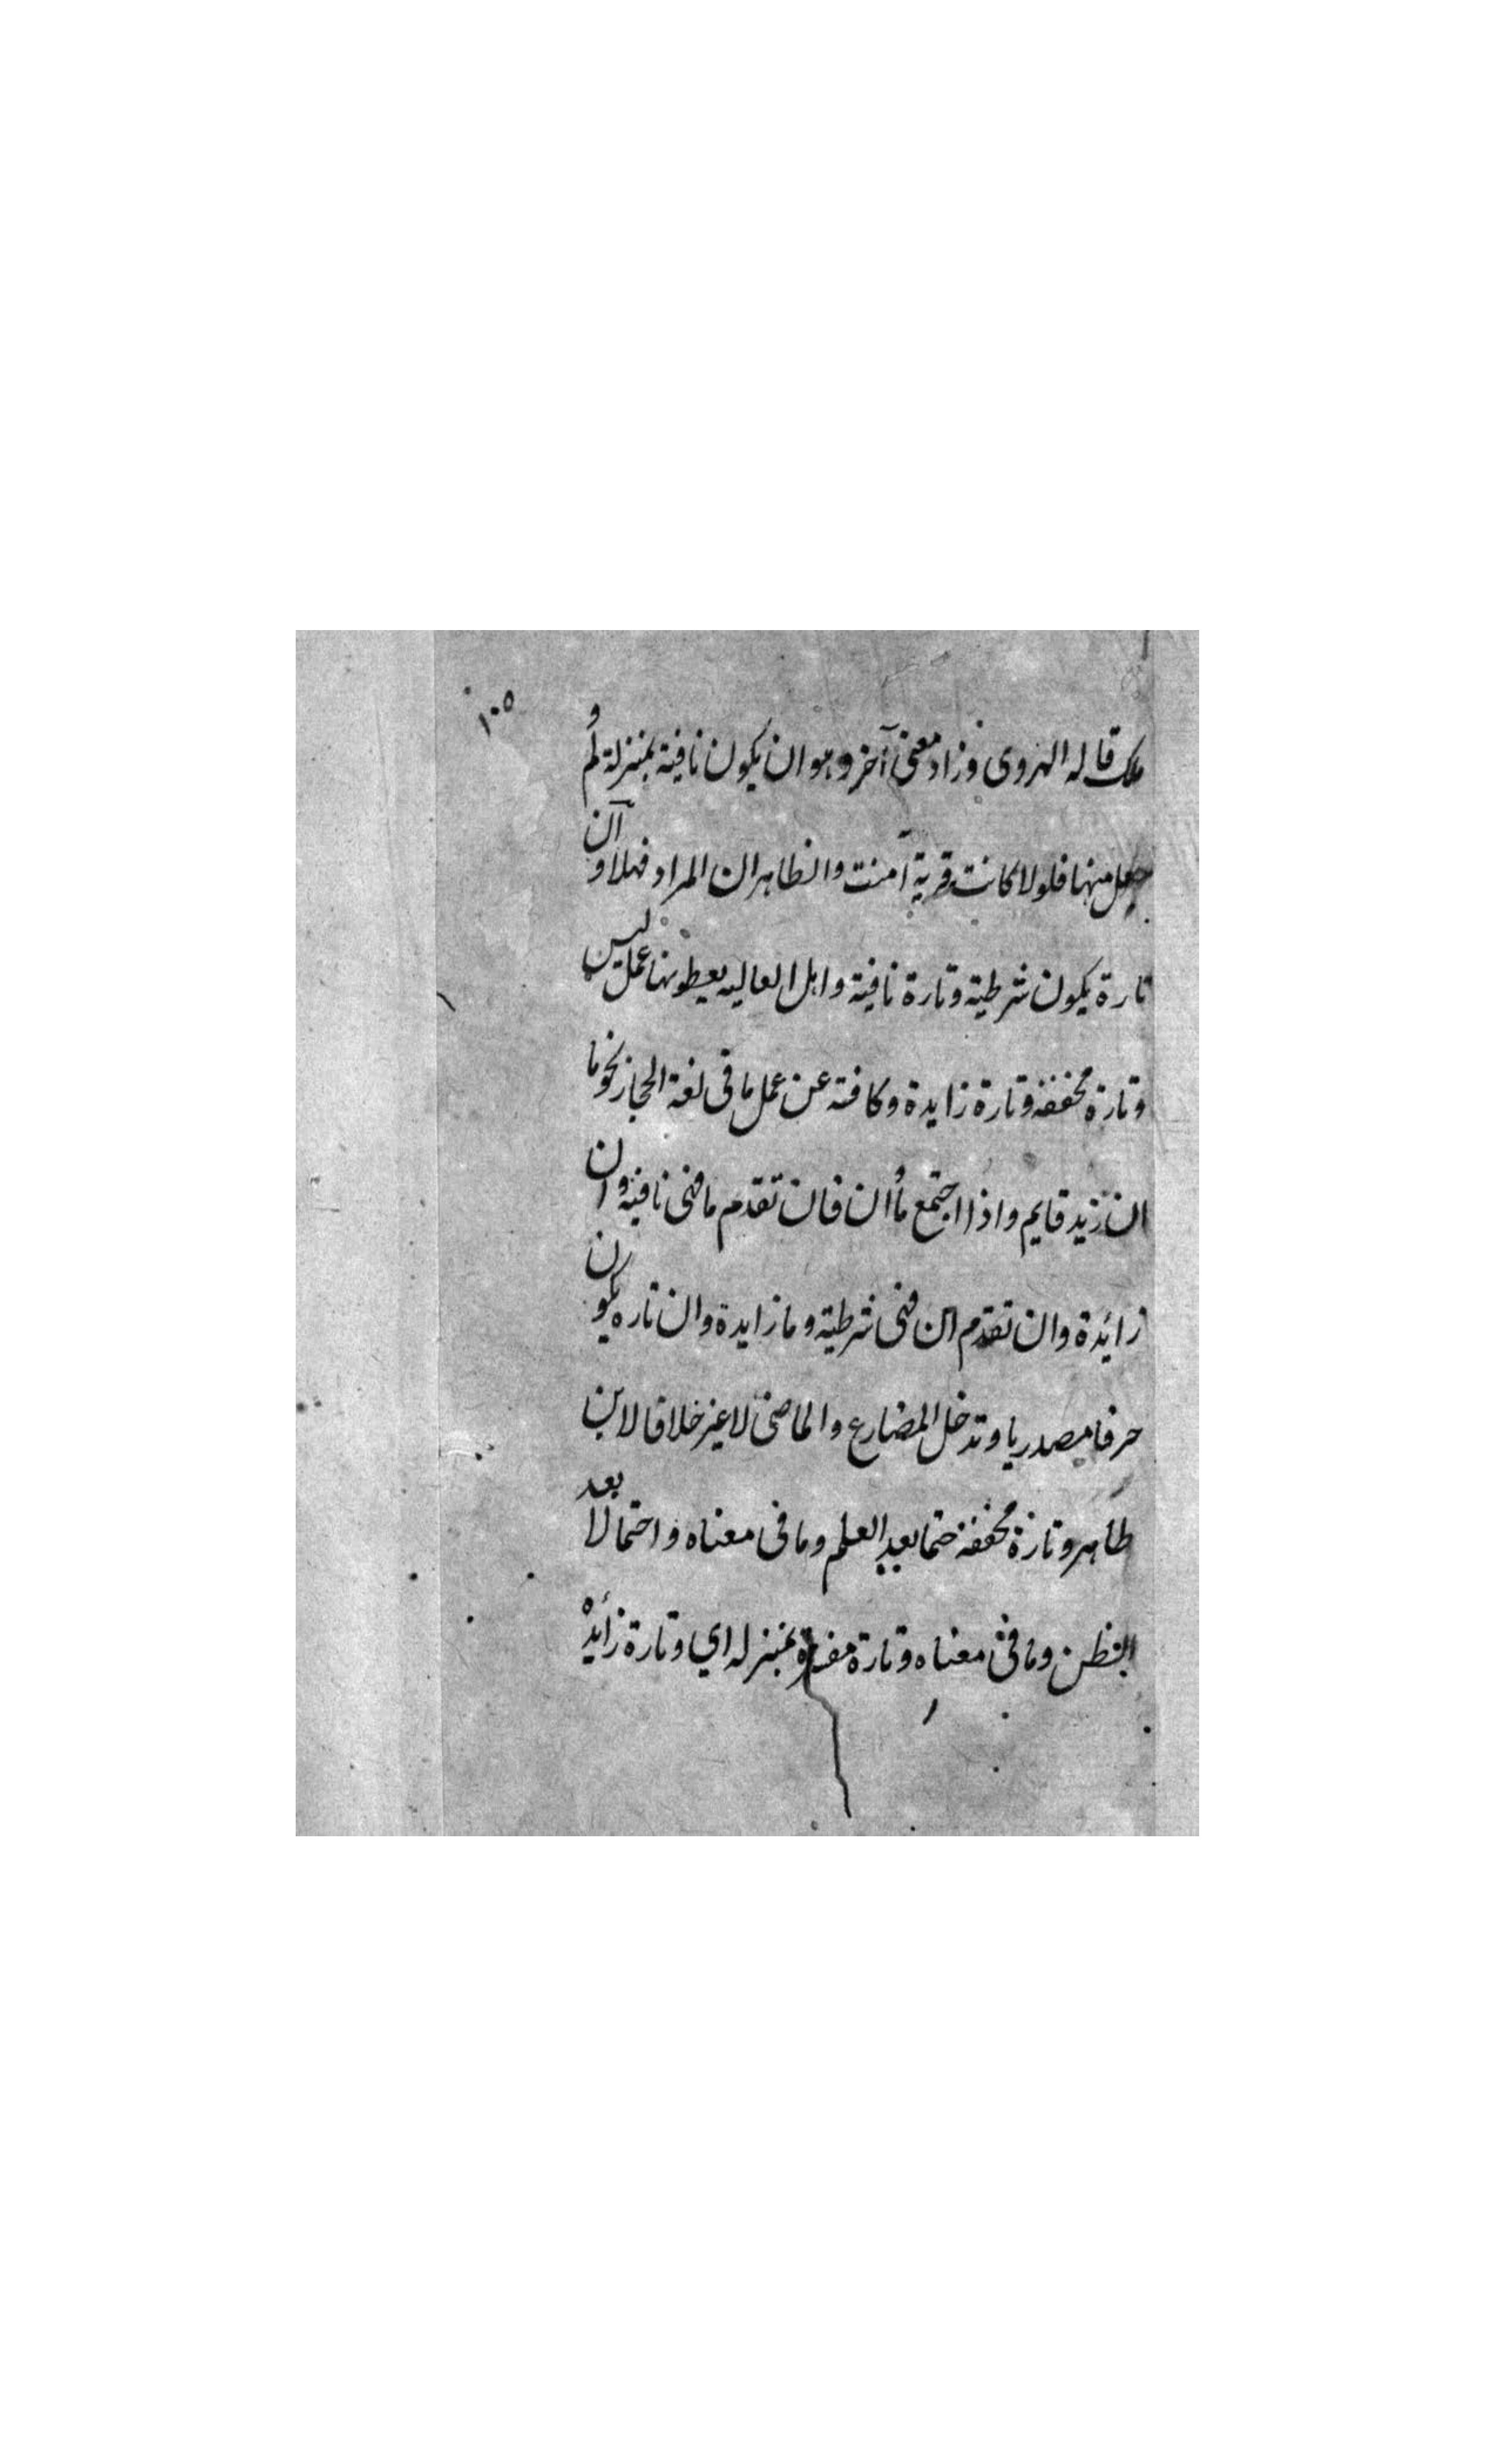 ١٠٥
ملك قاله الهروى وزاد معنى آخر وهو ان يكون نافية بمنزلة لم و
جعل منها فلولا كانت قرية آمنت والظاهر ان المراد فهلا وان
تارة يكون شرطية وتارة نافية واهل العاليه يعطونها عمل ليس
وتارة مخففه وتارة زايدة وكافته عن عمل ما فى لغة الحجاز نحو ما
ان زيد قايم واذا اجتمع ما وان فان تقدم ما فهى نافية وان
زائدة وان تقدم ان فهى شرطية وما زايدة وان تاره يكون
حرفا مصدريا وتدخل المضارع والماضى لا غير خلافا لابن
طاهر وتارة مخففة حتما بعد العلم وما فى معناه واحتمالا بعد
الظن وما فى معناه وتارة مفسرة بمنزله اي وتارة زائدة